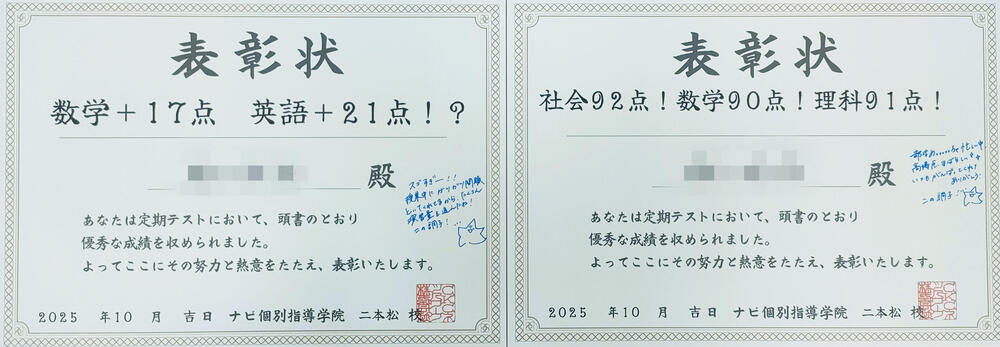 表彰状
数学＋１７点　英語＋２１点！？
殿
スゴすぎー！！
授業中にガリガリ問題
といてくれてるから、たくさん
演習量を進んだね！
この調子！
あなたは定期テストにおいて、頭書のとおり
優秀な成績を収められました。
よってここにその努力と熱意をたたえ、表彰いたします。
2025　年10　月　吉日　ナビ個別指導学院　二本松 校
表彰状
社会９２点！数学９０点！理科９１点！
殿
高得点、すばらしい
いつもがんばってくれて
ありがとう！
この調子！
あなたは定期テストにおいて、頭書のとおり
優秀な成績を収められました。
よってここにその努力と熱意をたたえ、表彰いたします。
2025　年10　月　吉日　ナビ個別指導学院　二本松 校